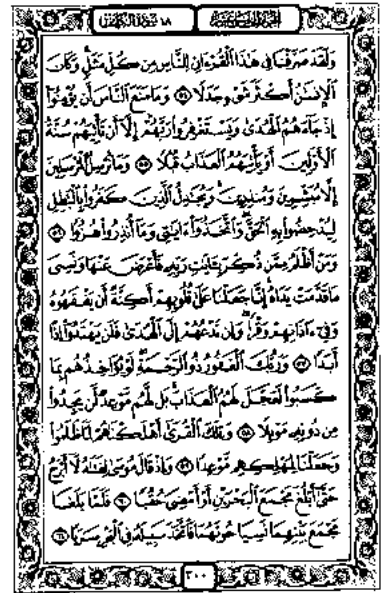 الجزء الخامس عشر ١٨ سورة الكهف
وَلَقَدْ صَرَّفْنَا فِي هَٰذَا الْقُرْءَانِ لِلنَّاسِ مِن كُلِّ مَثَلٍ وَكَانَ
الْإِنسَٰنُ أَكْثَرَ شَىْءٍ جَدَلًا ٥٤ وَمَا مَنَعَ النَّاسَ أَن يُؤْمِنُوٓا
إِذْ جَآءَهُمُ الْهُدَىٰ وَيَسْتَغْفِرُوا رَبَّهُمْ إِلَّآ أَن تَأْتِيَهُمْ سُنَّةُ
الْأَوَّلِينَ أَوْ يَأْتِيَهُمُ الْعَذَابُ قُبُلًا ٥٥ وَمَا نُرْسِلُ الْمُرْسَلِينَ
إِلَّا مُبَشِّرِينَ وَمُنذِرِينَ وَيُجَٰدِلُ الَّذِينَ كَفَرُوا بِالْبَٰطِلِ
لِيُدْحِضُوا بِهِ الْحَقَّ وَاتَّخَذُوٓا ءَايَٰتِى وَمَآ أُنذِرُوا هُزُوًا ٥٦
وَمَنْ أَظْلَمُ مِمَّن ذُكِّرَ بِـَٔايَٰتِ رَبِّهِ فَأَعْرَضَ عَنْهَا وَنَسِىَ
مَا قَدَّمَتْ يَدَاهُ إِنَّا جَعَلْنَا عَلَىٰ قُلُوبِهِمْ أَكِنَّةً أَن يَفْقَهُوهُ
وَفِىٓ ءَاذَانِهِمْ وَقْرًا وَإِن تَدْعُهُمْ إِلَى الْهُدَىٰ فَلَن يَهْتَدُوٓا إِذًا
أَبَدًا ٥٧ وَرَبُّكَ الْغَفُورُ ذُو الرَّحْمَةِ لَوْ يُؤَاخِذُهُم بِمَا
كَسَبُوا لَعَجَّلَ لَهُمُ الْعَذَابَ بَل لَّهُم مَّوْعِدٌ لَّن يَجِدُوا
مِن دُونِهِ مَوْئِلًا ٥٨ وَتِلْكَ الْقُرَىٰٓ أَهْلَكْنَٰهُمْ لَمَّا ظَلَمُوا
وَجَعَلْنَا لِمَهْلِكِهِم مَّوْعِدًا ٥٩ وَإِذْ قَالَ مُوسَىٰ لِفَتَىٰهُ لَآ أَبْرَحُ
حَتَّىٰٓ أَبْلُغَ مَجْمَعَ الْبَحْرَيْنِ أَوْ أَمْضِىَ حُقُبًا ٦٠ فَلَمَّا بَلَغَا
مَجْمَعَ بَيْنِهِمَا نَسِيَا حُوتَهُمَا فَاتَّخَذَ سَبِيلَهُ فِى الْبَحْرِ سَرَبًا ٦١
٣٠٠